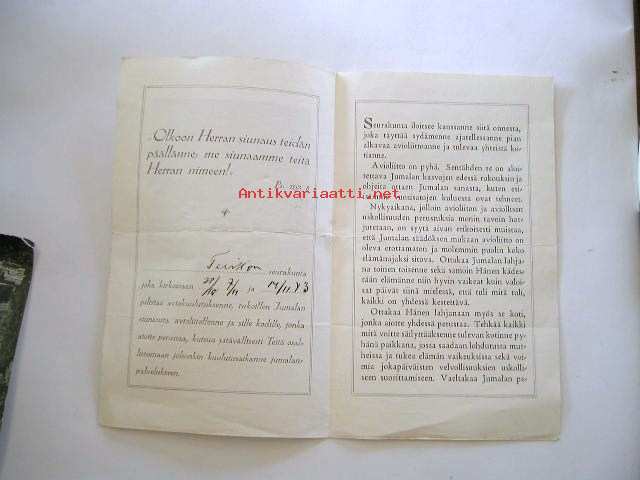 „Olkoon Herran siunaus teidän
päällänne; me siunaamme teitä
Herran nimeen!"
Ps.
Antikvariaatti.net
seurakunta
joka kirkoissaan
ja
julistaa aviokuulutuksenne, rukoillen Jumalan
siunausta avioliitollenne ja sille kodille, jonka
aiotte perustaa, kutsuu ystävällisesti Teitä osal-
listumaan johonkin kuulutusaikanne jumalan-
palvelukseen.
Seurakunta iloitsee kanssanne siitä onnesta,
joka täyttää sydämenne ajatellessanne pian
alkavaa avioliittoanne ja tulevaa yhteistä ko-
tianne.
Avioliitto on pyhä. Sentähden se on aloi-
tettava Jumalan kasvojen edessä rukouksin ja
ohjeita ottaen Jumalan sanasta, kuten esi-
vuosisatojen kuluessa ovat tehneet.
Nykyaikana, jolloin avioliiton ja aviollisen
uskollisuuden perustuksia monin tavoin har-
jutetaan, on syytä aivan erikoisesti muistaa,
että Jumalan säädöksen mukaan avioliitto on
oleva erottamaton ja molemmin puolin koko
elämänajaksi sitova. Ottakaa Jumalan lahja-
na toinen toisenne sekä samoin Hänen kädes-
tään elämänne niin hyvin vaikeat kuin valoi-
sat päivät tiinä mielessä, että tuli mitä tuli,
kaikki on yhdessä kestettävä.
Ottakaa Hänen lahjanaan myös se koti,
jonka aiotte yhdessä perustaa. Tehkää kaikki
mitä voitte säilyttääksenne tulevan kotinne py-
hänä paikkana, jossa saadaan lohdutusta mur-
heissa ja tukea elämän vaikeuksissa sekä voi-
mie jokapäiväisten velvollisuuksien uskolli-
seen suorittamiseen. Vaeltakaa Jumalan pe-